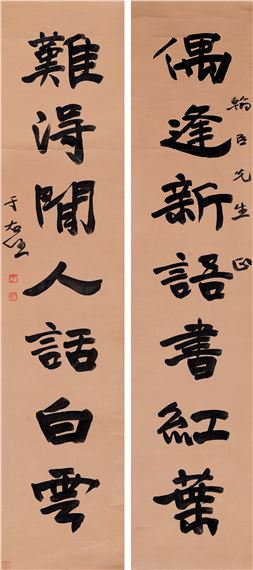 偶逢新語書紅葉
翰臣先生正
難得閒人話白雲
于右任